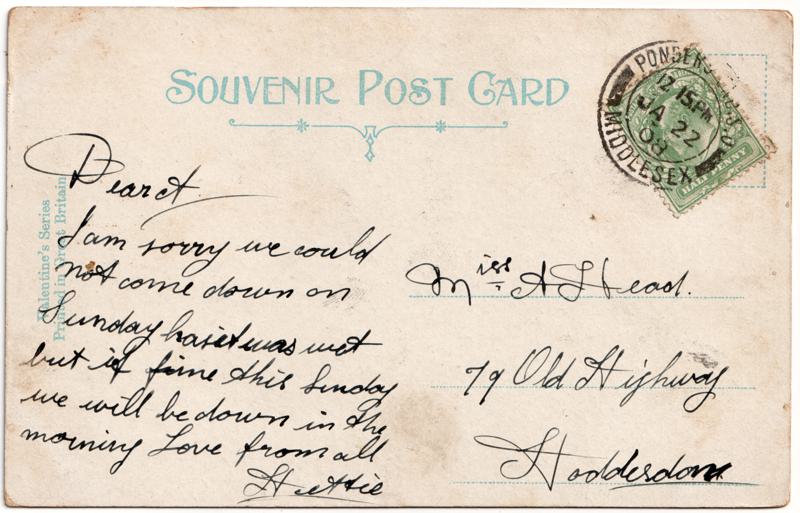 SOUVENIR POST CARD
PONDERS
12.15PM
JA 22
08
MIDDLESEX
HALF PENNY
Valentine's Series
Printed in Great Britain
Dear A
I am sorry we could
not come down on
Sunday has it was wet
but if fine this Sunday
we will be down in the
morning Love from all
Hettie
Miss A Head.
79 Old Highway
Hoddesdon